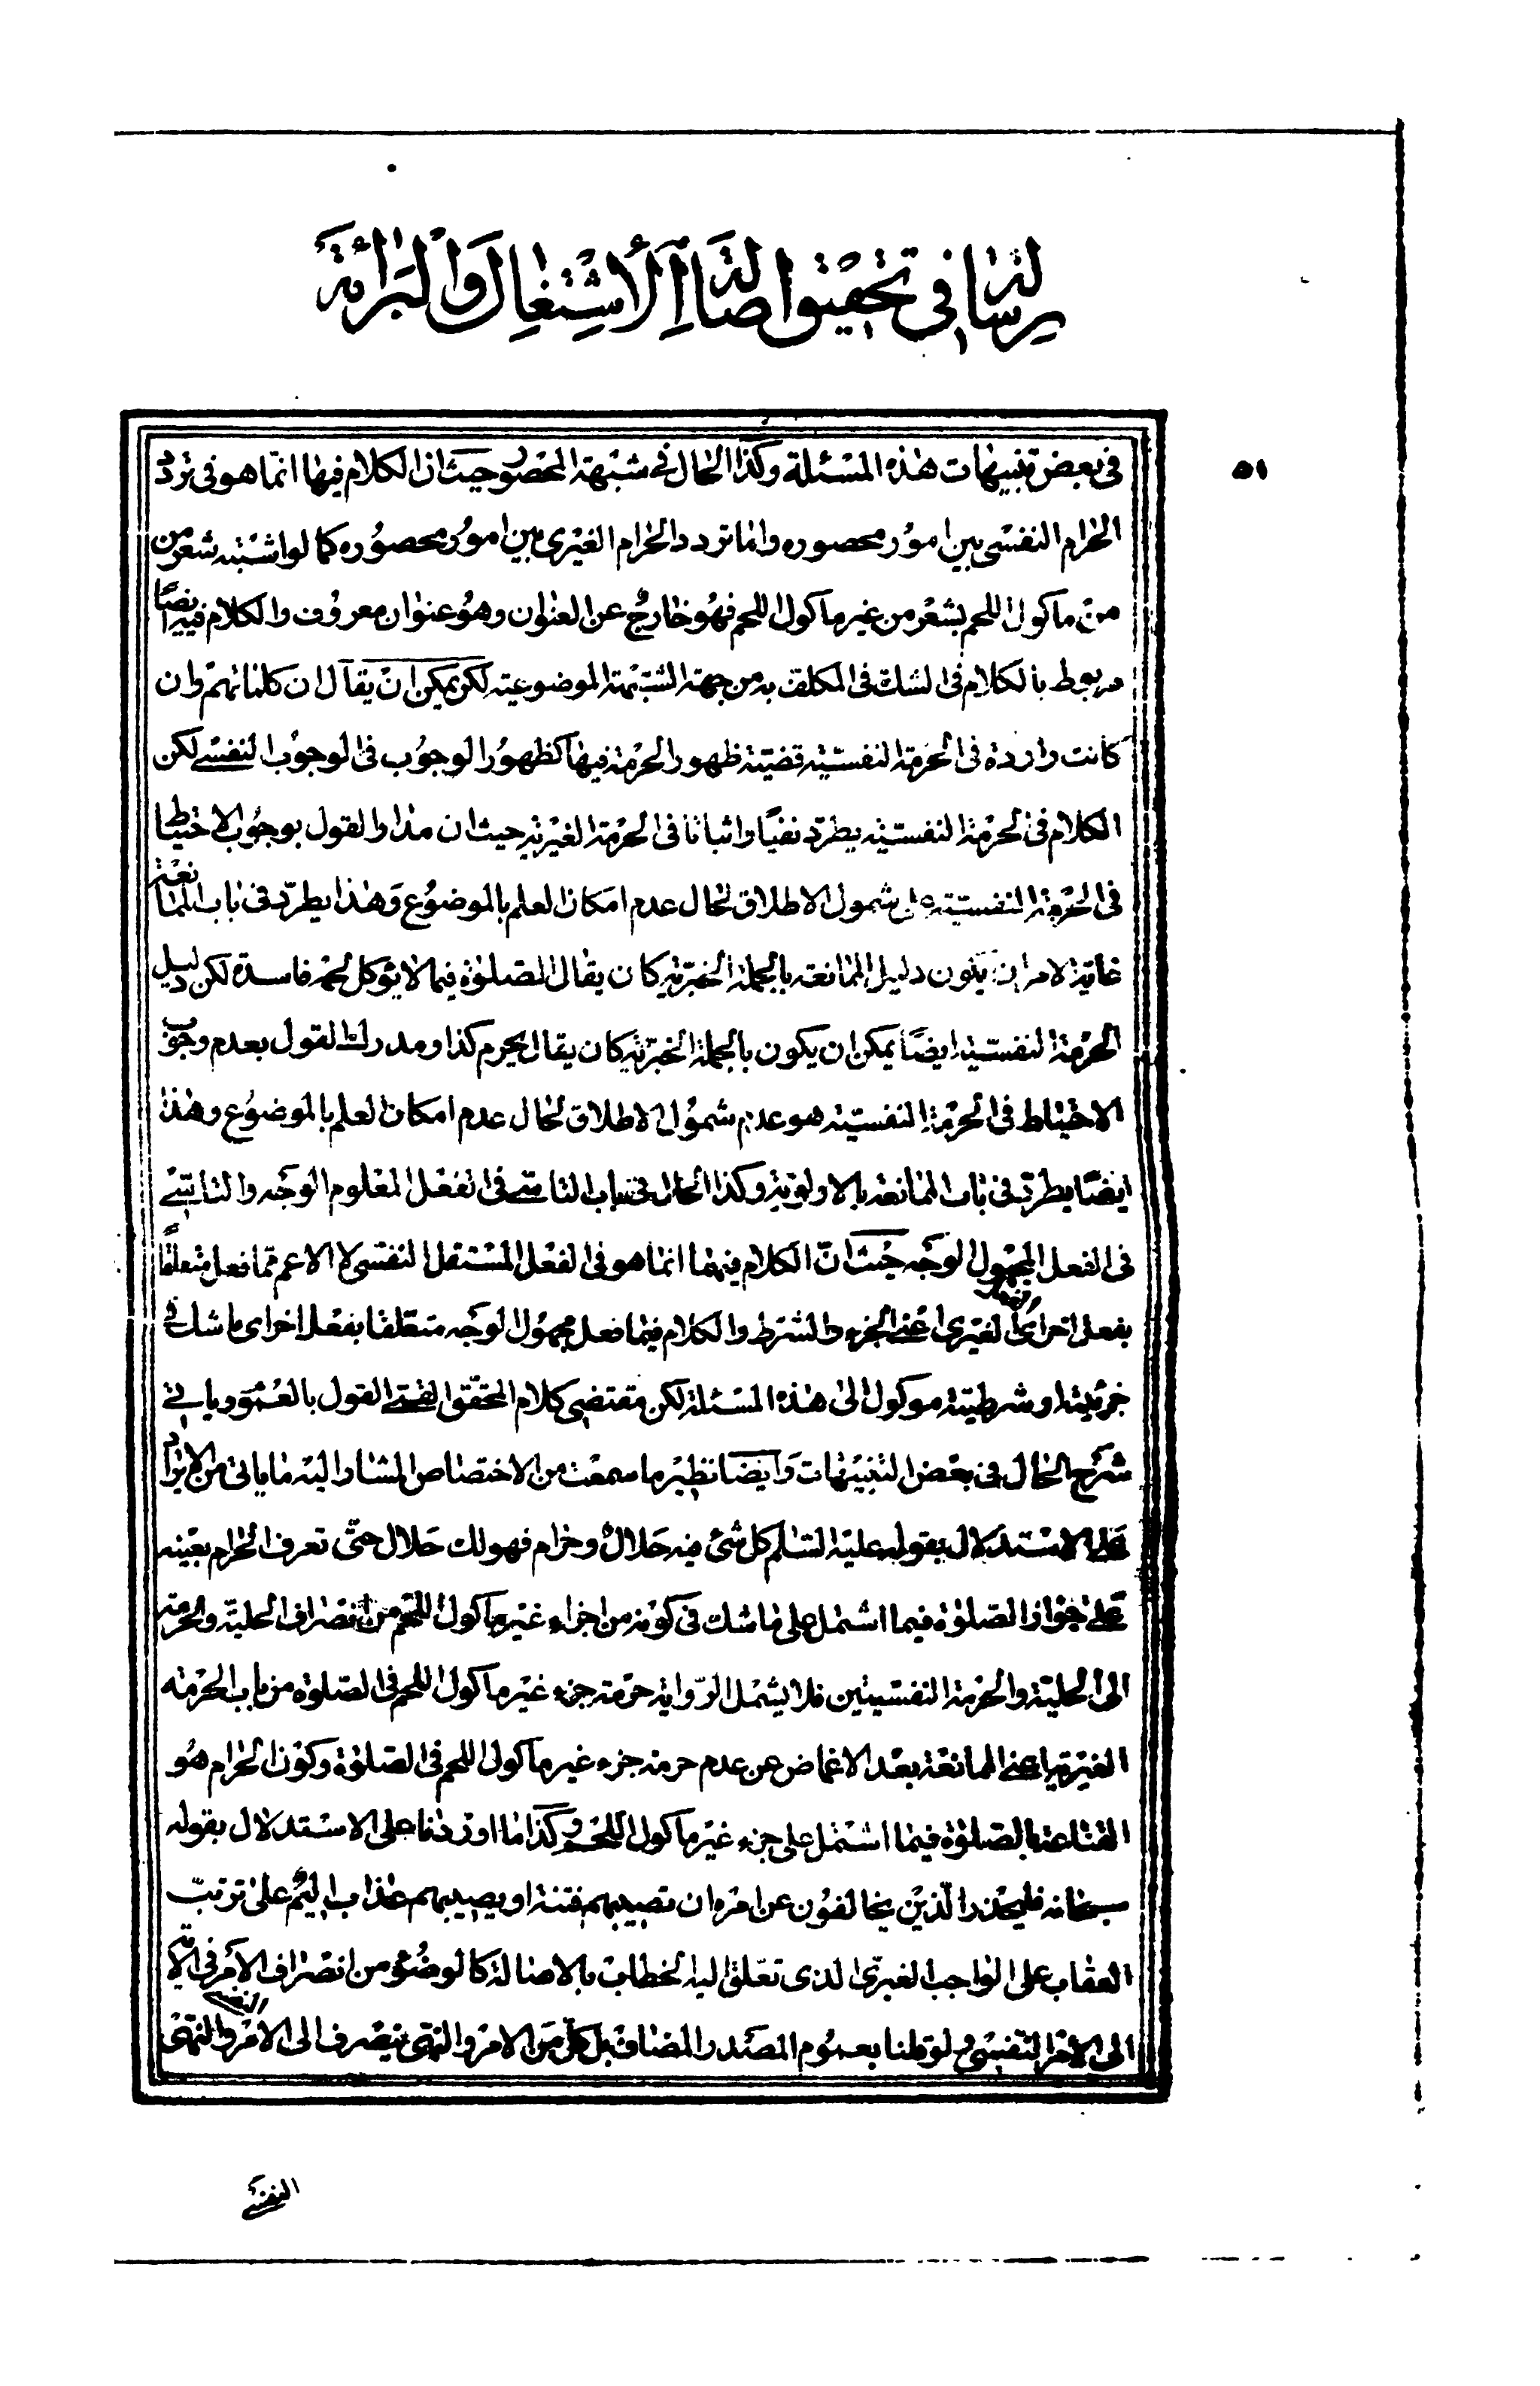 رسالة في تحقيق اصالة الاشتغال والبرائة
٥١
في بعض تنبيهات هذه المسئلة وكذا الحال في شبهة المحصور حيث ان الكلام فيها انما هو في تردد
الحرام النفسي بين امور محصوره واما تردد الحرام الغيرى بين امور محصوره كما لو اشتبه شعر من
من ماكول اللحم بشعر من غير ماكول اللحم فهو خارج عن العنوان وهو عنوان معروف والكلام فيه ايضا
مربوط بالكلام في الشك في المكلف به من جهة الشبهة الموضوعية لكن يمكن ان يقال ان كلماتهم وان
كانت واردة في الحرمة النفسيّة قضيّة ظهور الحرمة فيها كظهور الوجوب في الوجوب النفسي لكن
الكلام في الحرمة النفسيّة يطرد نفيا واثباتا في الحرمة الغيرية حيث ان مدار القول بوجوب الاحتياط
في الحرمة النفسيّة على شمول الاطلاق لحال عدم امكان العلم بالموضوع وهذا يطرد في باب الممانعة
غاية الامر ان يكون دليل الممانعة بالجملة الخبرية كان يقال الصلوة فيما لا يؤكل لحمه فاسدة لكن دليل
الحرمة النفسيّة ايضا يمكن ان يكون بالجملة الخبرية كان يقال يحرم كذا ومدرك القول بعدم وجوب
الاحتياط في الحرمة النفسيّة هو عدم شمول الاطلاق لحال عدم امكان العلم بالموضوع وهذا
ايضا يطرد في باب الممانعة بالاولوية وكذا الحال في باب التاسّي في الفعل المعلوم الوجه والتاسّي
في الفعل المجهول الوجه حيث انّ الكلام فيهما انما هو في الفعل المستقل النفسي لا الاعم مما فعل متعلقا
بفعل اخر اى الغيرى اعني الجزء والشرط والكلام فيما فعل مجهول الوجه متعلقا بفعل اخر اى ما شك في
جزئيته او شرطيته موكول الى هذه المسئلة لكن مقتضى كلام المحقق القمي القول بالعموم وياتي
شرح الحال في بعض التنبيهات وايضا نظير ما سمعت من الاختصاص المشار اليه ما ياتى من الايراد
على الاستدلال بقوله عليه السّلم كل شئ فيه حلال وحرام فهو لك حلال حتّى تعرف الحرام بعينه
على جواز الصلوة فيما اشتمل على ما شك في كونه من اجزاء غير ماكول اللحم من انصراف الحلية والحرمة
الى الحلية والحرمة النفسيتين فلا يشمل الرّواية حرمة جزء غير ماكول اللحم في الصلوة من باب الحرمة
الغيرية اعني الممانعة بعد الاغماض عن عدم حرمة جزء غير ماكول اللحم في الصلوة وكون الحرام هو
القناعة بالصلوة فيما اشتمل على جزء غير ماكول اللحم وكذا ما اوردنا على الاستدلال بقوله
سبحانه فليحذر الّذين يخالفون عن امره ان تصيبهم فتنة او يصيبهم عذاب اليم على ترتّب
العقاب على الواجب الغيرى الذى تعلق اليه الخطاب بالاصالة كالوضوء من انصراف الامر في الاية
الى الامر النفسي ولو قلنا بعموم المصدر المضاف بل كل من الامر والنهى ينصرف الى الامر والنهى
النفسي